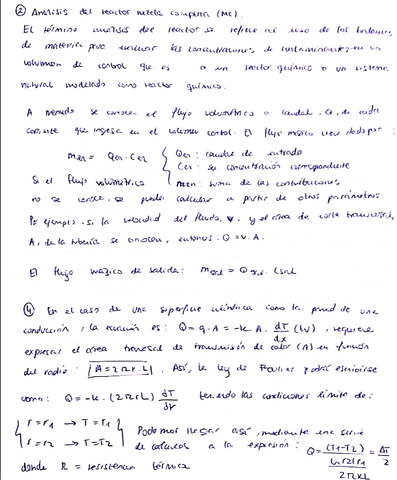 ② Análisis del reactor mezcla completa (MC).
El término análisis del reactor se refiere al uso de los balances
de materia para evaluar las concentraciones de contaminantes en un
volumen de control que es o un reactor químico o un sistema
natural modelado como reactor químico.
A menudo se conoce el flujo volumétrico o caudal, Q, de cada
corriente que ingresa en el volumen control. El flujo másico viene dado por:
Qen: caudal de entrada
Cen: su concentración correspondiente
men: suma de las contribuciones
Si el flujo volumétrico
no se conoce, se puede calcular a partir de otros parámetros
Por ejemplo, si la velocidad del fluido, v, y el área de corte transversal,
A, de la tubería se conocen, entonces: Q = v.A.
El flujo másico de salida: msal = Qsal. Csal
④ En el caso de una superficie cilíndrica como la pared de una
conducción, la ecuación es: Q = q.A = -k A. dT/dx (W), requiere
expresar el área transversal de transmisión de calor (A) en función
del radio: A = 2πr.L. Así, la ley de Fourier podrá escribirse
como: Q = -k. (2πrL) dT/dr teniendo las condiciones límite de:
r = r1 → T = T1
r = r2 → T = T2
Podemos llegar así, mediante una serie
de cálculos a la expresión:
donde R = resistencia térmica